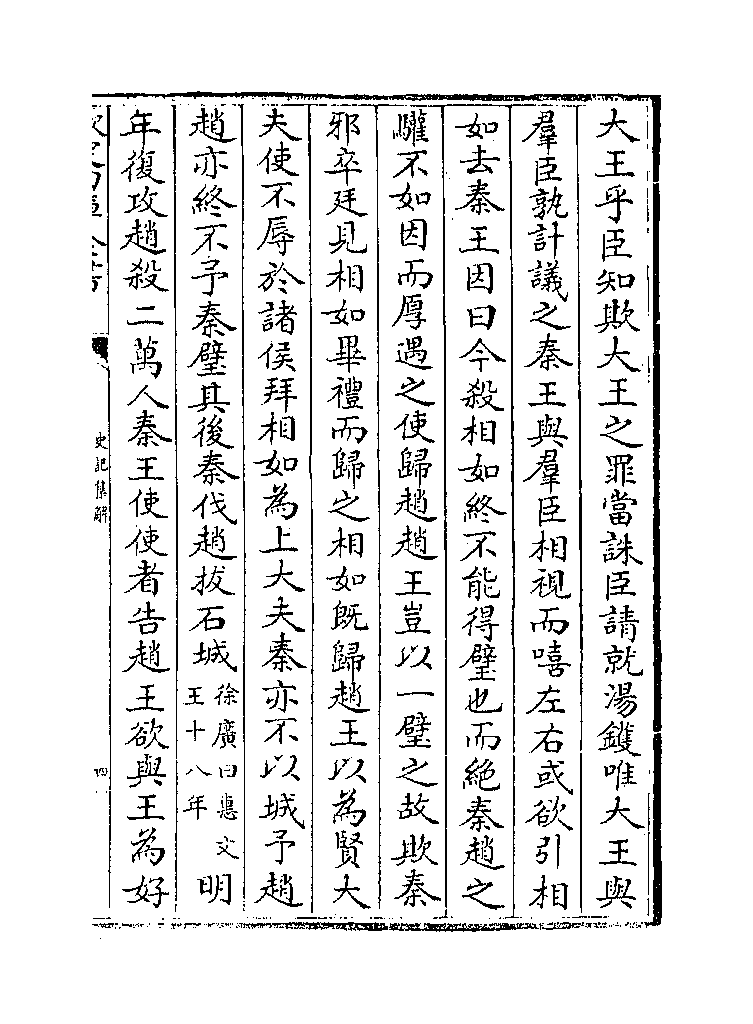 大王乎臣知欺大王之罪當誅臣請就湯鑊唯大王與
羣臣孰計議之秦王與羣臣相視而嘻左右或欲引相
如去秦王因曰今殺相如終不能得璧也而絶秦趙之
驩不如因而厚遇之使歸趙趙王豈以一璧之故欺秦
邪卒廷見相如畢禮而歸之相如既歸趙王以為賢大
夫使不辱於諸侯拜相如為上大夫秦亦不以城予趙
趙亦終不予秦璧其後秦伐趙拔石城徐廣曰惠文王十八年明
年復攻趙殺二萬人秦王使使者告趙王欲與王為好
史記集解
四